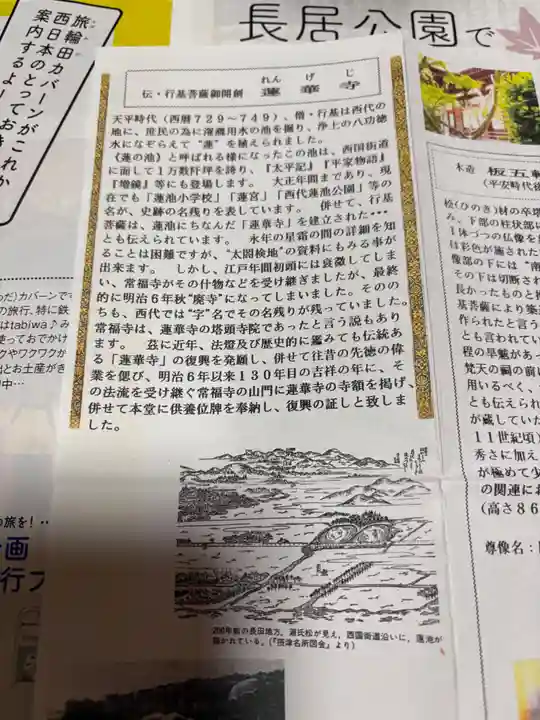 長居公園で
旅輪田カバーンがこれか
西日本のとっておきか
案内するよー
れんげじ
伝・行基菩薩御開創 蓮華寺
天平時代（西暦729～749）、僧・行基は西代の
地に、庶民の為に灌漑用水の池を掘り、浄土の八功徳
水になぞらえて“蓮”を植えられました。
《蓮の池》と呼ばれる様になったこの池は、西国街道
に面して1万数阡坪を誇り、『太平記』『平家物語』
『増鏡』等にも登場します。 大正年間まであり、現
在でも「蓮池小学校」「蓮宮」「西代蓮池公園」等の
名が、史跡の名残りを表しています。 併せて、行基
菩薩は、蓮池にちなんだ「蓮華寺」を建立された・・・
とも伝えられています。 永年の星霜の間の詳細を知
ることは困難ですが、“太閤検地”の資料にもみる事が
出来ます。 しかし、江戸年間初頭には衰微してしま
い、常福寺がその什物などを受け継ぎましたが、最終
的に明治6年秋“廃寺”になってしまいました。そのの
ちも、西代では“字”名でその名残りが残っていました。
常福寺は、蓮華寺の塔頭寺院であったと言う説もあり
ます。 茲に近年、法燈及び歴史的に鑑みても伝統あ
る「蓮華寺」の復興を発願し、併せて往昔の先徳の偉
業を偲び、明治6年以来130年目の吉祥の年に、そ
の法流を受け継ぐ常福寺の山門に蓮華寺の寺額を掲げ、
併せて本堂に供養位牌を奉納し、復興の証しと致しま
した。
200年前の長田地方。源氏松が見え、西国街道沿いに，蓮池が
描かれている。（『摂津名所図会』より）
木造 板五輪
（平安時代後
桧(ひのき)材の卒塔
み、下部の柱状部に
1体づつの仏像を
は彩色が施された
像部の下には“南
その下は切断され
長かったものと推
基菩薩により築造
作られたと言う
とも言われてい
程の旱魃があっ
梵天の嗣の前に
用いるべく、
とも伝えられ
が蔵していた
11世紀頃）
秀さに加え
が極めて少
の関連にお
(高さ86
尊像名：
だ）カバーンです
の旅行、特に鉄
はtabiwa♪み
使っておでかけ
クやワクワクが
とお土産がき
中…
の旅を！・・
画
行プ